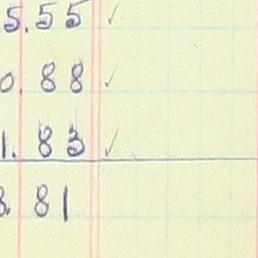 5.55 ✓
0.88 ✓
1.83 ✓
8.81